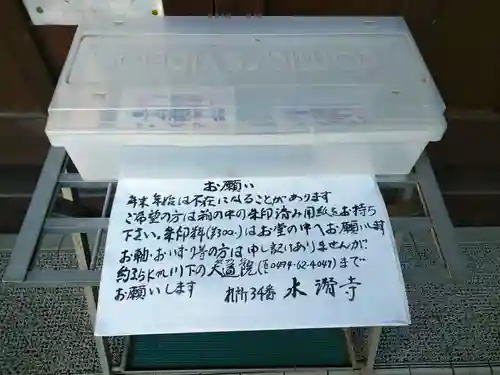 COMIC & VIDEO
お願い
年末年始は不在になることがあります
ご希望の方は箱の中の朱印済み用紙をお持ち
下さい。朱印料(¥300.)はお堂の中へお願います
お軸・おいずり等の方は申し訳ありませんが
約3.5Km川下の大通院(℡0494-62-4049)まで
お願いします 札所34番 水潜寺